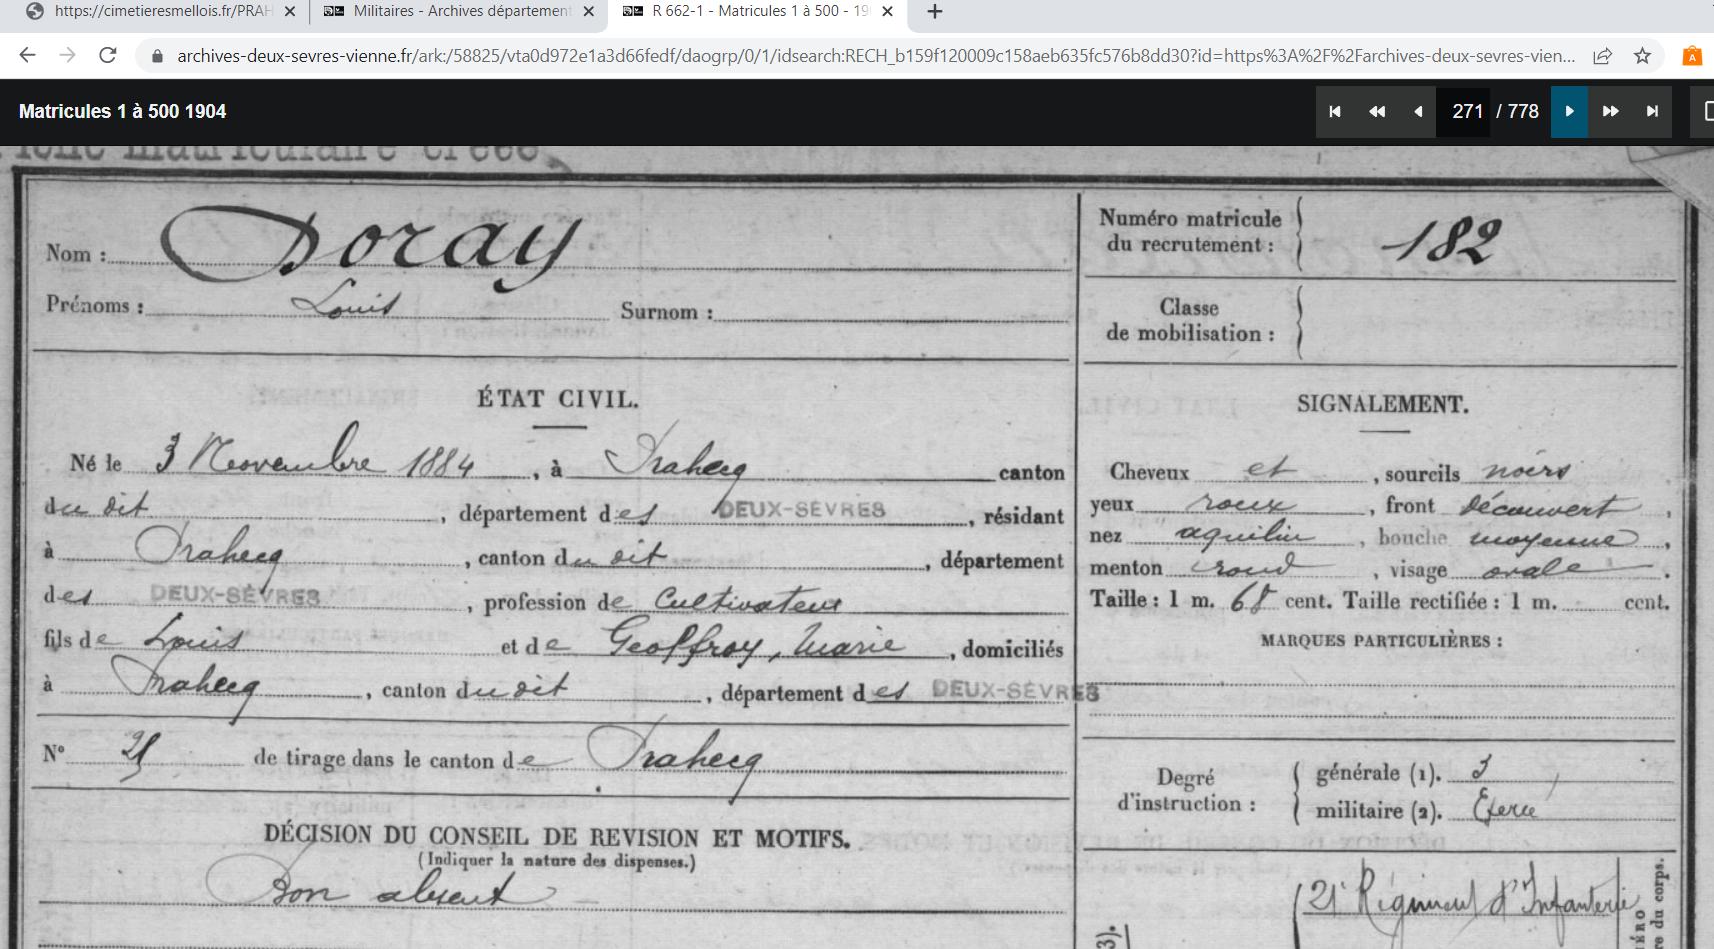 https://cimetieresmellois.fr/PRAH
Militaires - Archives département
R 662-1 - Matricules 1 à 500 - 19
archives-deux-sevres-vienne.fr/ark:/58825/vta0d972e1a3d66fedf/daogrp/0/1/idsearch:RECH_b159f120009c158aeb635fc576b8dd30?id=https%3A%2F%2Farchives-deux-sevres-vien...
Matricules 1 à 500 1904
271 / 778
Nom : Doray
Prénoms : Louis Surnom :
Numéro matricule
du recrutement : 182
Classe
de mobilisation :
ÉTAT CIVIL.
Né le 3 Novembre 1884, à Prahecq canton
du dit, département des DEUX-SÈVRES, résidant
à Prahecq, canton du dit, département
des DEUX-SÈVRES, profession de Cultivateur
fils de Louis et de Geoffroy, Marie, domiciliés
à Prahecq, canton du dit, département des DEUX-SÈVRES
N° de tirage dans le canton de Prahecq
DÉCISION DU CONSEIL DE REVISION ET MOTIFS.
(Indiquer la nature des dispenses.)
Bon absent
SIGNALEMENT.
Cheveux et, sourcils noirs
yeux roux, front découvert,
nez aquilin, bouche moyenne,
menton rond, visage ovale.
Taille : 1 m. 68 cent. Taille rectifiée : 1 m. cent.
MARQUES PARTICULIÈRES :
Degré
d'instruction :
générale (1). 3
militaire (2). Exercé
21e Régiment d'Infanterie